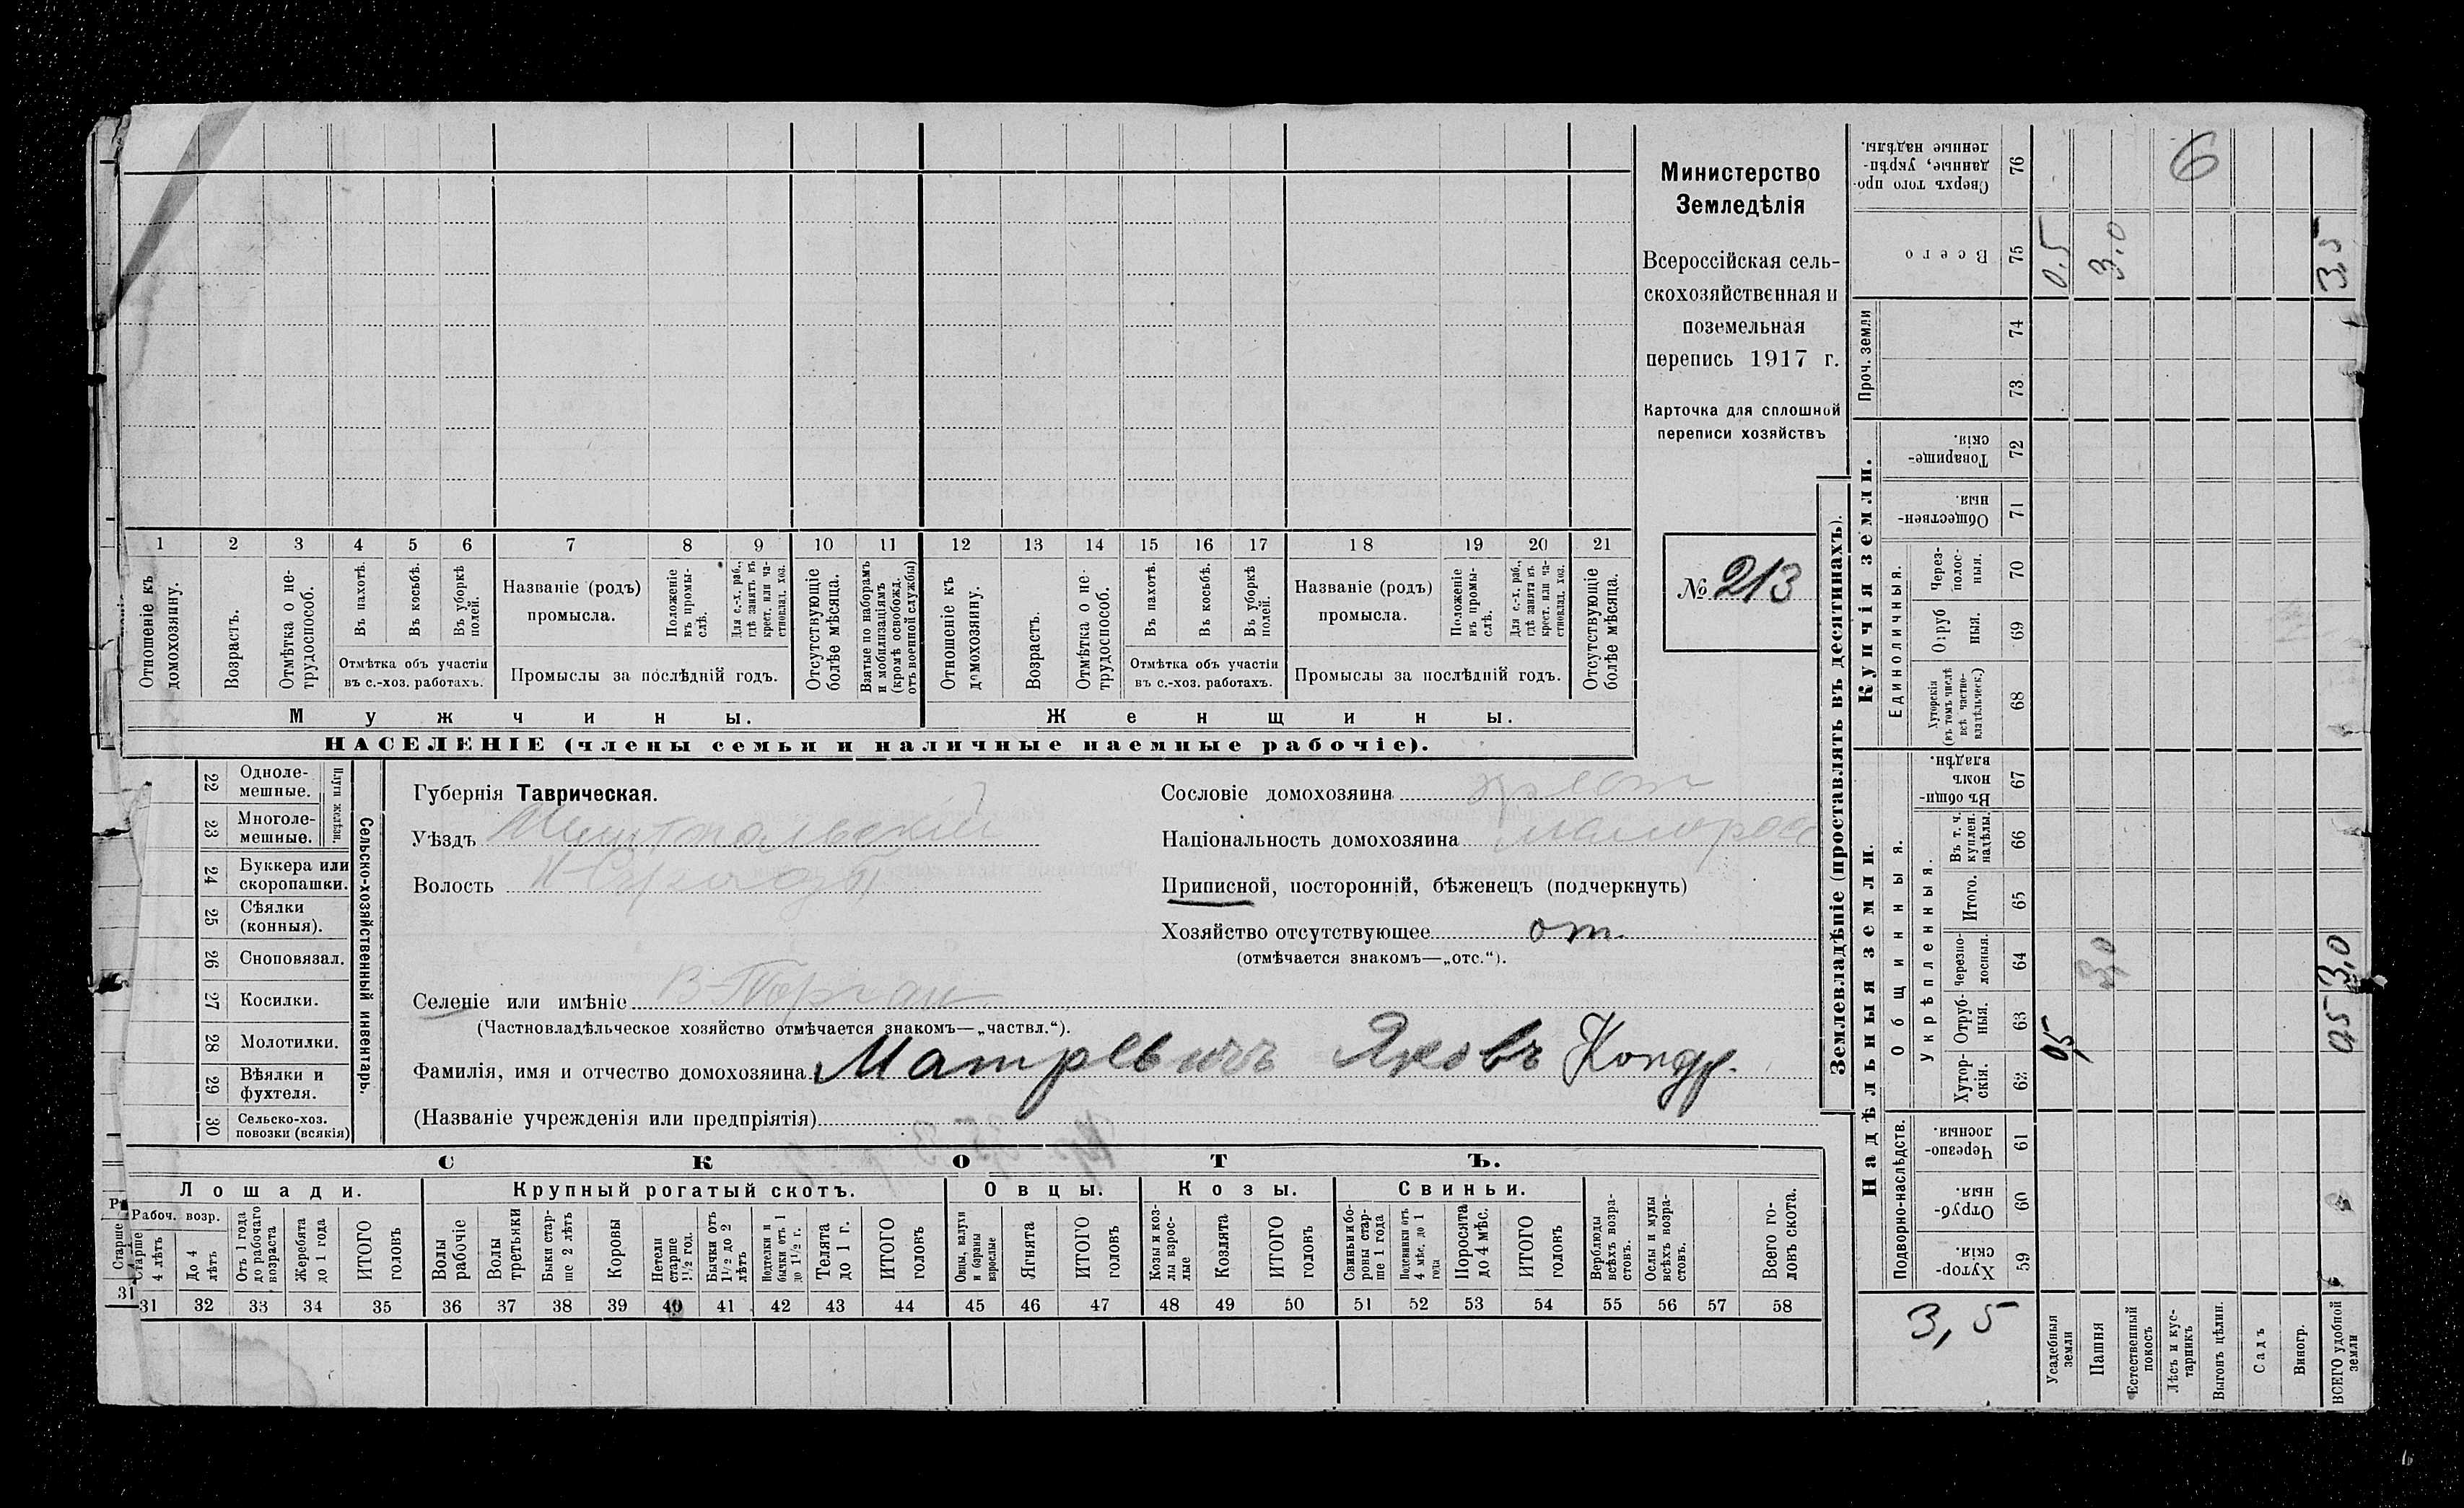 Министерство
Земледѣлія
Всероссійская сель-
скохозяйственная и
поземельная
перепись 1917 г.
Карточка для сплошной
переписи хозяйствъ
№ 213
1 2 3 4 5 6 7 8 9 10 11 12 13 14 15 16 17 18 19 20 21
Отношеніе къ домохозяину.
Возрастъ.
Отмѣтка о не-трудоспособ.
Въ пахотѣ.
Въ косьбѣ.
Въ уборкѣ полей.
Отмѣтка объ участіи
въ с.-хоз. работахъ.
Названіе (родъ)
промысла.
Положеніе въ промы-слѣ.
Для с.-х. раб., гдѣ занятъ въ крест. или ча-стновлад. хоз.
Промыслы за послѣдній годъ.
Отсутствующіе болѣе мѣсяца.
Взятые по наборамъ и мобилизаціямъ (кромѣ освобожд. отъ военной службы)
Отношеніе къ домохозяину.
Возрастъ.
Отмѣтка о не-трудоспособ.
Въ пахотѣ.
Въ косьбѣ.
Въ уборкѣ полей.
Отмѣтка объ участіи
въ с.-хоз. работахъ.
Названіе (родъ)
промысла.
Положеніе въ промы-слѣ.
Для с.-х. раб., гдѣ занята въ крест. или ча-стновлад. хоз.
Промыслы за послѣдній годъ.
Отсутствующіе болѣе мѣсяца.
Мужчины.
Женщины.
НАСЕЛЕНІЕ (члены семьи и наличные наемные рабочіе).
22 Одноле-мешные.
23 Многоле-мешные.
Плуги желѣзн.
24 Буккера или скоропашки.
25 Сѣялки (конныя).
26 Сноповязал.
27 Косилки.
28 Молотилки.
29 Вѣялки и фухтеля.
30 Сельско-хоз. повозки (всякія)
Сельско-хозяйственный инвентарь.
Губернія Таврическая.
Уѣздъ Мелитопольскій
Волость
Сословіе домохозяина крест
Національность домохозяина малоросс
Приписной, посторонній, бѣженецъ (подчеркнуть)
Хозяйство отсутствующее от.
(отмѣчается знакомъ—„отс.“).
Селеніе или имѣніе В-Торгаи
(Частновладѣльческое хозяйство отмѣчается знакомъ—„частвл.“).
Фамилія, имя и отчество домохозяина Матревичъ Яковъ Кондр.
(Названіе учрежденія или предпріятія)
СКОТЪ.
Лошади.
Крупный рогатый скотъ.
Овцы.
Козы.
Свиньи.
Рабоч. возр.
Старше 4 лѣтъ
До 4 лѣтъ
Отъ 1 года до рабочаго возраста
Жеребята до 1 года
ИТОГО головъ
Волы рабочіе
Волы третьяки
Быки стар-ше 2 лѣтъ
Коровы
Нетели старше 1½ год.
Бычки отъ 1½ до 2 лѣтъ
Подтелки и бычки отъ 1 до 1½ г.
Телята до 1 г.
ИТОГО головъ
Овцы, валухи и бараны взрослые
Ягнята
ИТОГО головъ
Козы и коз-лы взрос-лые
Козлята
ИТОГО головъ
Свиньи и бо-ровы стар-ше 1 года
Подсвинки отъ 4 мѣс. до 1 года
Поросята до 4 мѣс.
ИТОГО головъ
Верблюды всѣхъ возра-стовъ.
Ослы и мулы всѣхъ возра-стовъ.
Всего го-ловъ скота.
31 32 33 34 35 36 37 38 39 40 41 42 43 44 45 46 47 48 49 50 51 52 53 54 55 56 57 58
Землевладѣніе (проставлять въ десятинахъ).
Сверхъ того про-данные, укрѣп-ленные надѣлы. 76 6
Всего 75 0,5 3,0 3,5
Проч. земли 74 73
Купчія земли.
Товарище-скія. 72
Обществен-ныя. 71
Единоличныя.
Через-полос-ныя. 70
Отруб ныя. 69
Хуторскія (въ томъ числѣ всѣ частно-владѣльческ.) 68
Надѣльныя земли.
Общинныя.
Въ общи-номъ владѣн. 67
Укрѣпленныя.
Въ т. ч. куплен. надѣлы. 66
Итого. 65
Черезпо-лосныя. 64 3,0 3,0
Отруб-ныя. 63
Хутор-скія. 62
05 0,5
Подворно-наслѣдств.
Черезпо-лосныя. 61
Отруб-ныя. 60
Хутор-скія. 59
3,5
Усадебныя земли
Пашня
Естественный покосъ
Лѣсъ и кус-тарникъ
Выгонъ цѣлин.
Садъ
Виногр.
ВСЕГО удобной земли